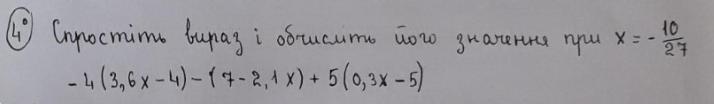 4° Спростіть вираз і обчисліть його значення при x = -10/27
-4(3,6x-4)-(7-2,1x)+5(0,3x-5)